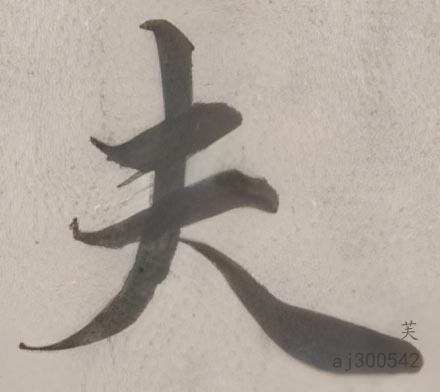 夫
芙
aj300542